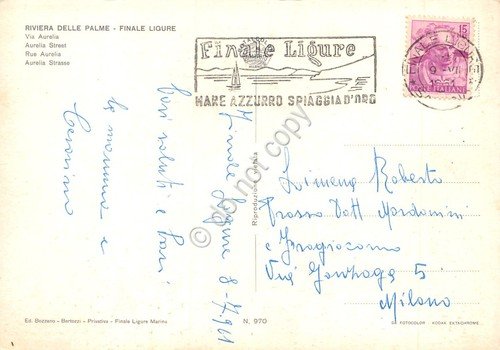 RIVIERA DELLE PALME - FINALE LIGURE
Via Aurelia
Aurelia Street
Rue Aurelia
Aurelia Strasse
Finale Ligure
MARE AZZURRO SPIAGGIA D'ORO
15
POSTE ITALIANE
Finale Ligure 8-7-961
Cari saluti e baci
la mamma e
Geronimo
Riproduzione vietata
do not copy
Limena Roberto
Presso Dott Mardonini
e Fragiacomo
Via Gonzaga 5
Milano
Ed. Bozzano - Bertozzi - Privativa - Finale Ligure Marina
N. 970
FOTOCOLOR - KODAK EKTACHROME